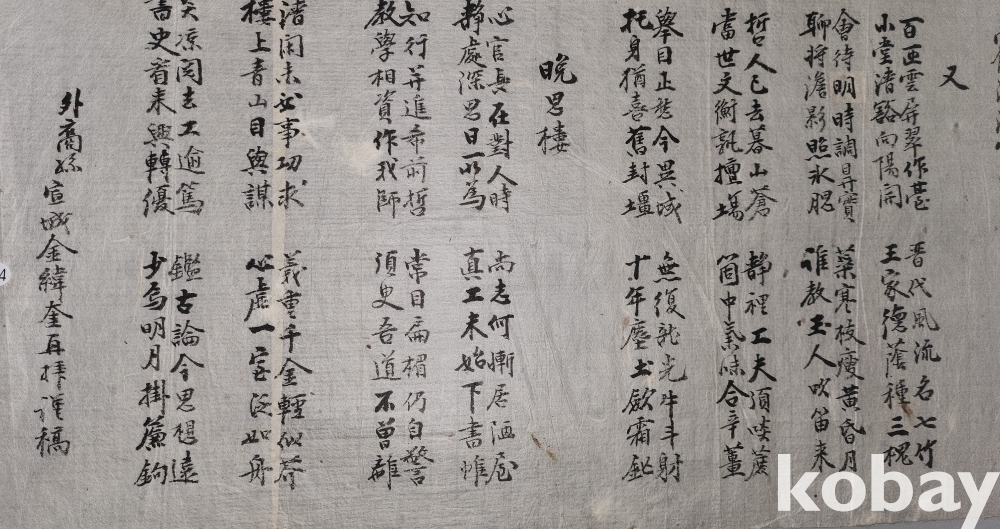 又
百匝雲屏翠作堆 晋代風流名七竹
小堂渚豁向陽開 王家德蔭種三槐
會待明時調鼎實 葉寒枝瘦黃昏月
聊將澹影照氷腮 誰教玉人吹笛来
哲人已去暮山蒼 静裡工夫須啖蔗
當世文衡孰擅場 箇中氣味合辛薑
擧目正愁今異域 無復龍光牛斗射
托身猶喜舊封壃 十年塵土歛霜鋩
晚思樓
心官真在對人時 尚志何慚居陋屋
静處深思日所為 真工未始下書帷
知行并進希前哲 常目扁楣仍自警
教學相資作我師 須臾吾道不曾離
渚閑未必事功求 義重千金輕似芥
樓上青山目與謀 心虛一室泛如舟
凉閱去工逾篤 鑑古論今思想遠
書史看来興轉優 少焉明月掛簾鉤
外裔孫宣城金緯奎再拝謹稿
kobay
4